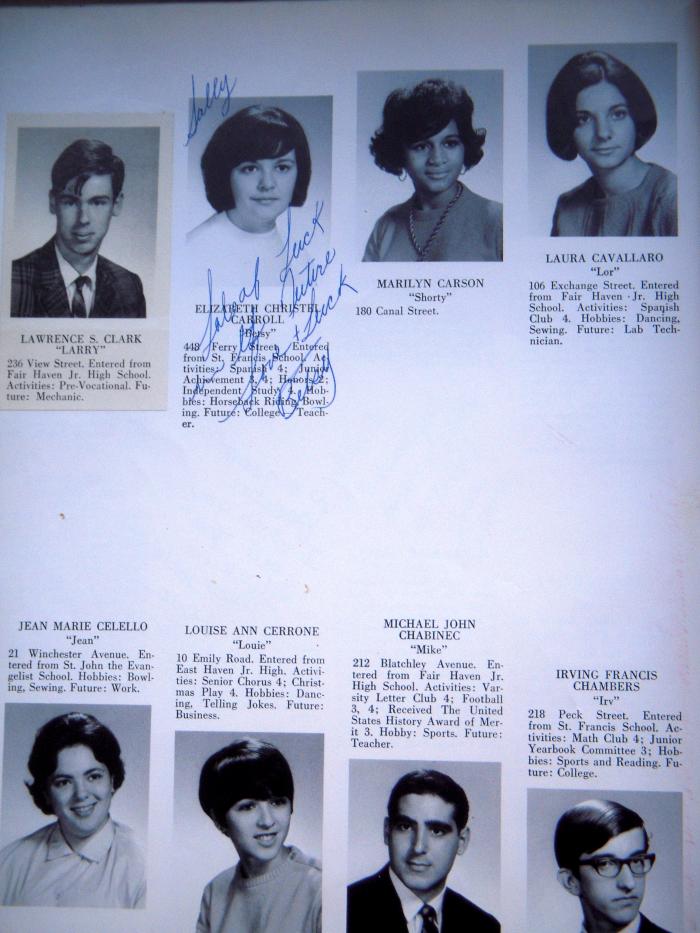 LAWRENCE S. CLARK
"LARRY"
236 View Street. Entered from
Fair Haven Jr. High School.
Activities: Pre-Vocational. Fu-
ture: Mechanic.
Sally
Luck
Future
Luck
Betsy
ELIZABETH CHRISTEL
CARROLL
"Betsy"
448 Ferry Street. Entered
from St. Francis School. Ac-
tivities: Spanish 4; Junior
Achievement 3, 4; Honors 2;
Independent Study 4. Hob-
bies: Horseback Riding, Bowl-
ing. Future: College, Teach-
er.
MARILYN CARSON
"Shorty"
180 Canal Street.
LAURA CAVALLARO
"Lor"
106 Exchange Street. Entered
from Fair Haven Jr. High
School. Activities: Spanish
Club 4. Hobbies: Dancing,
Sewing. Future: Lab Tech-
nician.
JEAN MARIE CELELLO
"Jean"
21 Winchester Avenue. En-
tered from St. John the Evan-
gelist School. Hobbies: Bowl-
ing, Sewing. Future: Work.
LOUISE ANN CERRONE
"Louie"
10 Emily Road. Entered from
East Haven Jr. High. Activi-
ties: Senior Chorus 4; Christ-
mas Play 4. Hobbies: Danc-
ing, Telling Jokes. Future:
Business.
MICHAEL JOHN
CHABINEC
"Mike"
212 Blatchley Avenue. En-
tered from Fair Haven Jr.
High School. Activities: Var-
sity Letter Club 4; Football
3, 4; Received The United
States History Award of Mer-
it 3. Hobby: Sports. Future:
Teacher.
IRVING FRANCIS
CHAMBERS
"Irv"
218 Peck Street. Entered
from St. Francis School. Ac-
tivities: Math Club 4; Junior
Yearbook Committee 3; Hob-
bies: Sports and Reading. Fu-
ture: College.